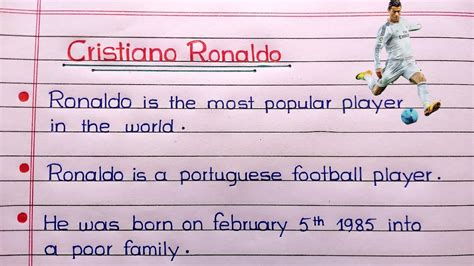 Cristiano Ronaldo
Ronaldo is the most popular player
in the world.
Ronaldo is a portuguese football player.
He was born on february 5th 1985 into
a poor family.